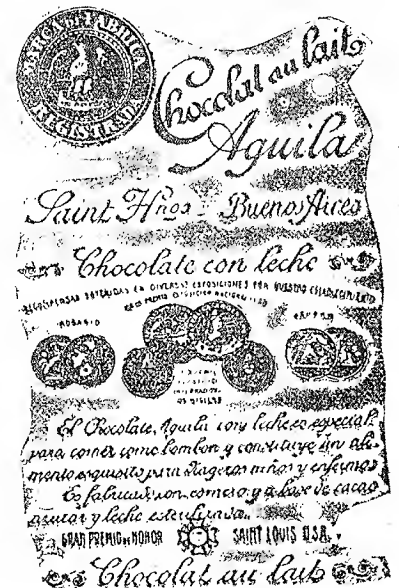 MARCA DE FABRICA
REGISTRADA
Chocolat au lait
Aguila
Saint Hños Buenos Aires
Chocolate con leche
RECOMPENSAS OBTENIDAS EN DIVERSAS EXPOSICIONES POR NUESTRO ESTABLECIMIENTO
GRAN PREMIO
ROSARIO
El Chocolate Aguila con leche es especial
para comer como bombon y constituye un ali-
mento exquisito para viageros niños y enfermos
Es fabricado con esmero y a base de cacao
azucar y leche esterilizada
GRAN PREMIO DE HONOR SAINT LOUIS U.S.A.
Chocolat au lait